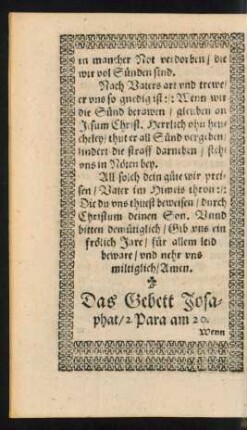 in mancher Not verdorben / die
wir vol Sünden sind.
Nach Vaters art vnd trewe /
er vns so gnedig ist :/: Wenn wir
die Sünd berawen / gleuben an
Jesum Christ. Hertzlich ohn heu-
cheley / thut er all Sünd vergeben /
lindert die straff darneben / steht
vns in Nöten bey.
All solch dein güte wir prei-
sen / Vater im Himels thron :/:
Die du vns thuest beweisen / durch
Christum deinen Son. Vnnd
bitten demütiglich / Gib vns ein
frölich Jare / für allem leid
beware / vnd nehr vns
miltiglich / Amen.
Das Gebett Josa-
phat / 2 Para am 20.
Wenn